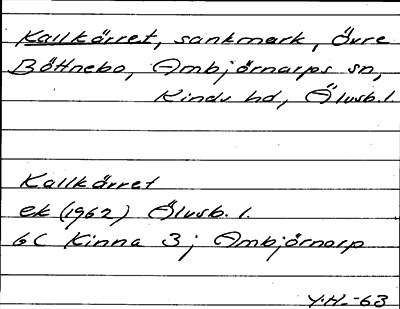 Kallkärret, sankmark, Övre
Böttnebo, Ambjörnarps sn,
Kinds hd, Älvsb. l.
Kallkärret
ek (1962) Älvsb. l.
6C Kinna 3j Ambjörnarp
Y.H. -63